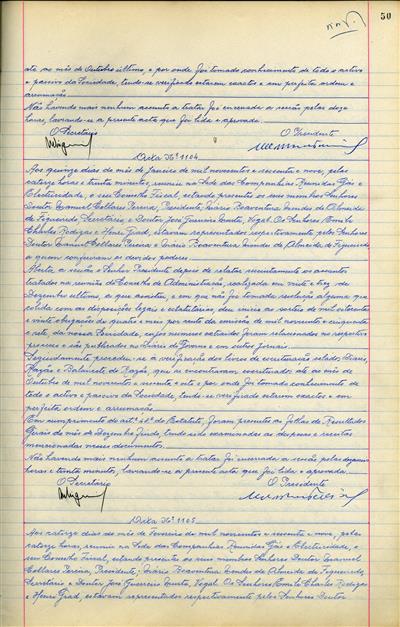 50
até ao mês de Outubro último, e por onde foi tomado conhecimento de todo o activo
e passivo da Sociedade, tendo-se verificado estarem exactos e em perfeita ordem e
arrumação.
Não havendo mais nenhum assunto a tratar foi encerrada a sessão pelas doze
horas, lavrando-se a presente acta que foi lida e aprovada.
O Secretário O Presidente
Acta Nº 1104
Aos quinze dias do mês de Janeiro de mil novecentos e sessenta e nove, pelas
catorze horas e trinta minutos, reuniu na Sede das Companhias Reunidas Gás e
Electricidade, o seu Conselho Fiscal, estando presentes os seus membros Senhores
Doutor Manuel Collares Pereira, Presidente, Mário Boaventura Mendes de Almeida
de Figueiredo, Secretário e Doutor José Guerreiro Murta, Vogal. Os Senhores Emile
Charles Rodigas e Henri Giad, estavam representados respectivamente pelos Senhores
Doutor Manuel Collares Pereira e Mário Boaventura Mendes de Almeida de Figueiredo,
a quem conferiram os devidos poderes.
Aberta a sessão o Senhor Presidente depois de relatar sucintamente os assuntos
tratados na reunião do Conselho de Administração, realizada em vinte e três de
Dezembro último, a que assistiu, e em que não foi tomada resolução alguma que
colida com as disposições legais e estatutárias, deu início ao sorteio de mil oitocentas
e vinte obrigações de quatro e meio por cento da emissão de mil novecentos e cinquenta
e sete, da nossa Sociedade, cujos números extraídos foram relacionados no respectivo
processo e são publicados no Diário do Governo e em outros jornais.
Seguidamente procedeu-se à verificação dos livros de escrituração selados: Diário,
Razão e Balancete do Razão, que se encontravam escriturados até ao mês de
Outubro de mil novecentos e sessenta e oito e por onde foi tomado conhecimento de
todo o activo e passivo da Sociedade, tendo-se verificado estarem exactos e em
perfeita ordem e arrumação.
Em cumprimento do artº 48º do Estatuto, foram presentes as Folhas de Resultados
Gerais do mês de Dezembro findo, tendo sido examinadas as despesas e receitas
mencionadas nesses documentos.
Não havendo mais nenhum assunto a tratar foi encerrada a sessão pelas dezasseis
horas e trinta minutos, lavrando-se a presente acta que foi lida e aprovada.
O Secretário O Presidente
Acta Nº 1105
Aos catorze dias do mês de Fevereiro de mil novecentos e sessenta e nove, pelas
catorze horas, reuniu na Sede das Companhias Reunidas Gás e Electricidade, o
seu Conselho Fiscal, estando presentes os seus membros Senhores Doutor Manuel
Collares Pereira, Presidente, Mário Boaventura Mendes de Almeida de Figueiredo,
Secretário e Doutor José Guerreiro Murta, Vogal. Os Senhores Emile Charles Rodigas
e Henri Giad, estavam representados respectivamente pelos Senhores Doutor